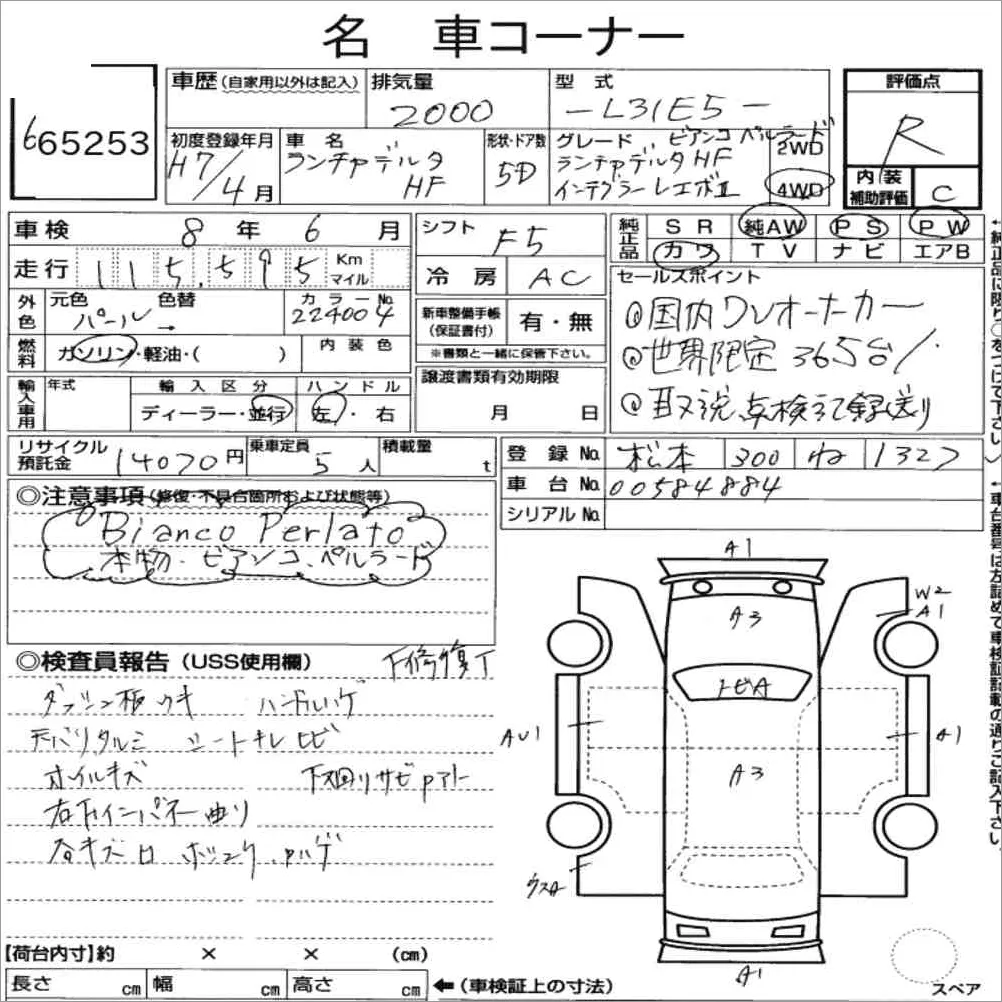 名 車コーナー
665253
車歴 (自家用以外は記入)
排気量
2000
型 式
-L31E5-
評価点
R
初度登録年月
H7/4月
車 名
ランチャデルタ
HF
形状・ドア数
5D
グレード ビアンコ ペルラード
ランチャデルタHF
インテグラーレエボⅡ
2WD
4WD
内装
補助評価
C
車検 8年 6月
走行 115,595 Km
マイル
シフト
F5
冷房 AC
純正品
SR 純AW PS PW
カワ TV ナビ エアB
外色
元色 色替 カラーNo.
パール → 224004
燃料
ガソリン・軽油・( )
内装色
新車整備手帳
(保証書付)
有・無
※書類と一緒に保管下さい。
セールスポイント
@国内ワンオーナーカー
@世界限定365台!
@取説、点検記録送り
輸入車用
年式
輸入区分
ハンドル
ディーラー・並行
左・右
譲渡書類有効期限
月 日
リサイクル
預託金
14070円
乗車定員
5人
積載量
t
登録No. 松本 300 ね 1327
車台No. 00584884
シリアルNo.
◎注意事項(修復・不具合箇所および状態等)
Bianco Perlato
本物・ビアンコ、ペルラード
◎検査員報告 (USS使用欄)
下修復T
ダッシュ板ウキ ハンドルハゲ
天バリタルミ シートキレ ヒビ
オイルキズ 下廻りサビPアト
右Fインパネー曲り
A1
A3
トビA
A3
W2
A1
AU1
A1
ウスA
A1
スペア
【荷台内寸】約 × × (cm)
長さ cm 幅 cm 高さ cm ←(車検証上の寸法)
←純正品に限り○をつけて下さい〉
←車台番号は左詰めで車検証記載の通りご記入下さい。